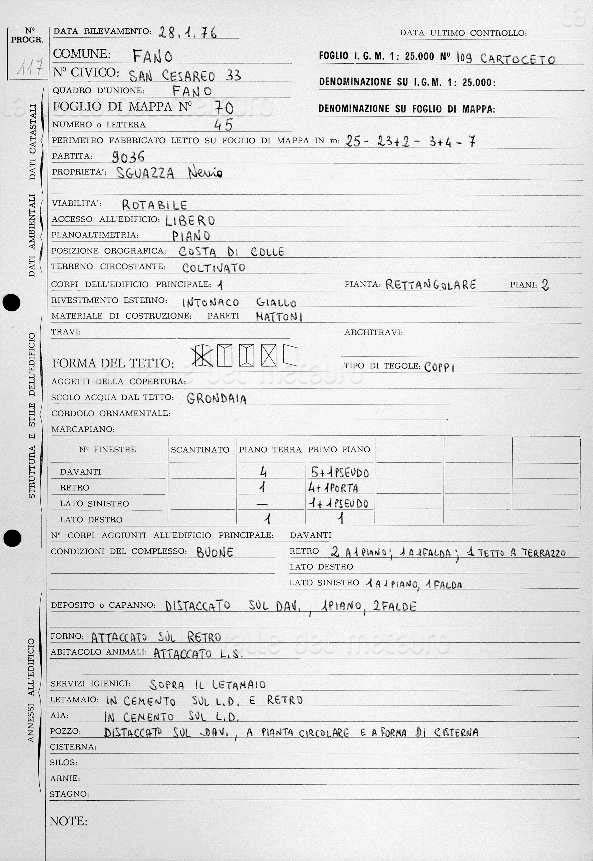 N° PROGR. 117
DATA RILEVAMENTO: 28.1.76 DATA ULTIMO CONTROLLO:
COMUNE: FANO FOGLIO I. G. M. 1: 25.000 N° 109 CARTOCETO
N° CIVICO: SAN CESAREO 33 DENOMINAZIONE SU I.G.M. 1: 25.000:
QUADRO D'UNIONE: FANO
FOGLIO DI MAPPA N° 70 DENOMINAZIONE SU FOGLIO DI MAPPA:
NUMERO o LETTERA 45
PERIMETRO FABBRICATO LETTO SU FOGLIO DI MAPPA IN m: 25 - 23+2 - 3+4 - 7
PARTITA: 9036
PROPRIETA': SGUAZZA Nevio
DATI CATASTALI
VIABILITA': ROTABILE
ACCESSO ALL'EDIFICIO: LIBERO
PLANOALTIMETRIA: PIANO
POSIZIONE OROGRAFICA: COSTA DI COLLE
TERRENO CIRCOSTANTE: COLTIVATO
DATI AMBIENTALI
CORPI DELL'EDIFICIO PRINCIPALE: 1 PIANTA: RETTANGOLARE PIANI: 2
RIVESTIMENTO ESTERNO: INTONACO GIALLO
MATERIALE DI COSTRUZIONE: PARETI MATTONI
TRAVI: ARCHITRAVI:
FORMA DEL TETTO: TIPO DI TEGOLE: COPPI
AGGETTI DELLA COPERTURA:
SCOLO ACQUA DAL TETTO: GRONDAIA
CORDOLO ORNAMENTALE:
MARCAPIANO:
N° FINESTRE SCANTINATO PIANO TERRA PRIMO PIANO
DAVANTI 4 5+1PSEUDO
RETRO 1 4+1PORTA
LATO SINISTRO — 1+1PSEUDO
LATO DESTRO 1 1
STRUTTURA E STILE DELL'EDIFICIO
N° CORPI AGGIUNTI ALL'EDIFICIO PRINCIPALE: DAVANTI
CONDIZIONI DEL COMPLESSO: BUONE RETRO 2 A 1 PIANO; 1 A 1 FALDA; 1 TETTO A TERRAZZO
LATO DESTRO
LATO SINISTRO 1 A 1 PIANO, 1 FALDA
DEPOSITO o CAPANNO: DISTACCATO SUL DAV., 1PIANO, 2FALDE
FORNO: ATTACCATO SUL RETRO
ABITACOLO ANIMALI: ATTACCATO L.S.
SERVIZI IGIENICI: SOPRA IL LETAMAIO
LETAMAIO: IN CEMENTO SUL L.D. E RETRO
AIA: IN CEMENTO SUL L.D.
POZZO: DISTACCATO SUL DAV., A PIANTA CIRCOLARE E A FORMA DI CISTERNA
CISTERNA:
SILOS:
ARNIE:
STAGNO:
ANNESSI ALL'EDIFICIO
NOTE: